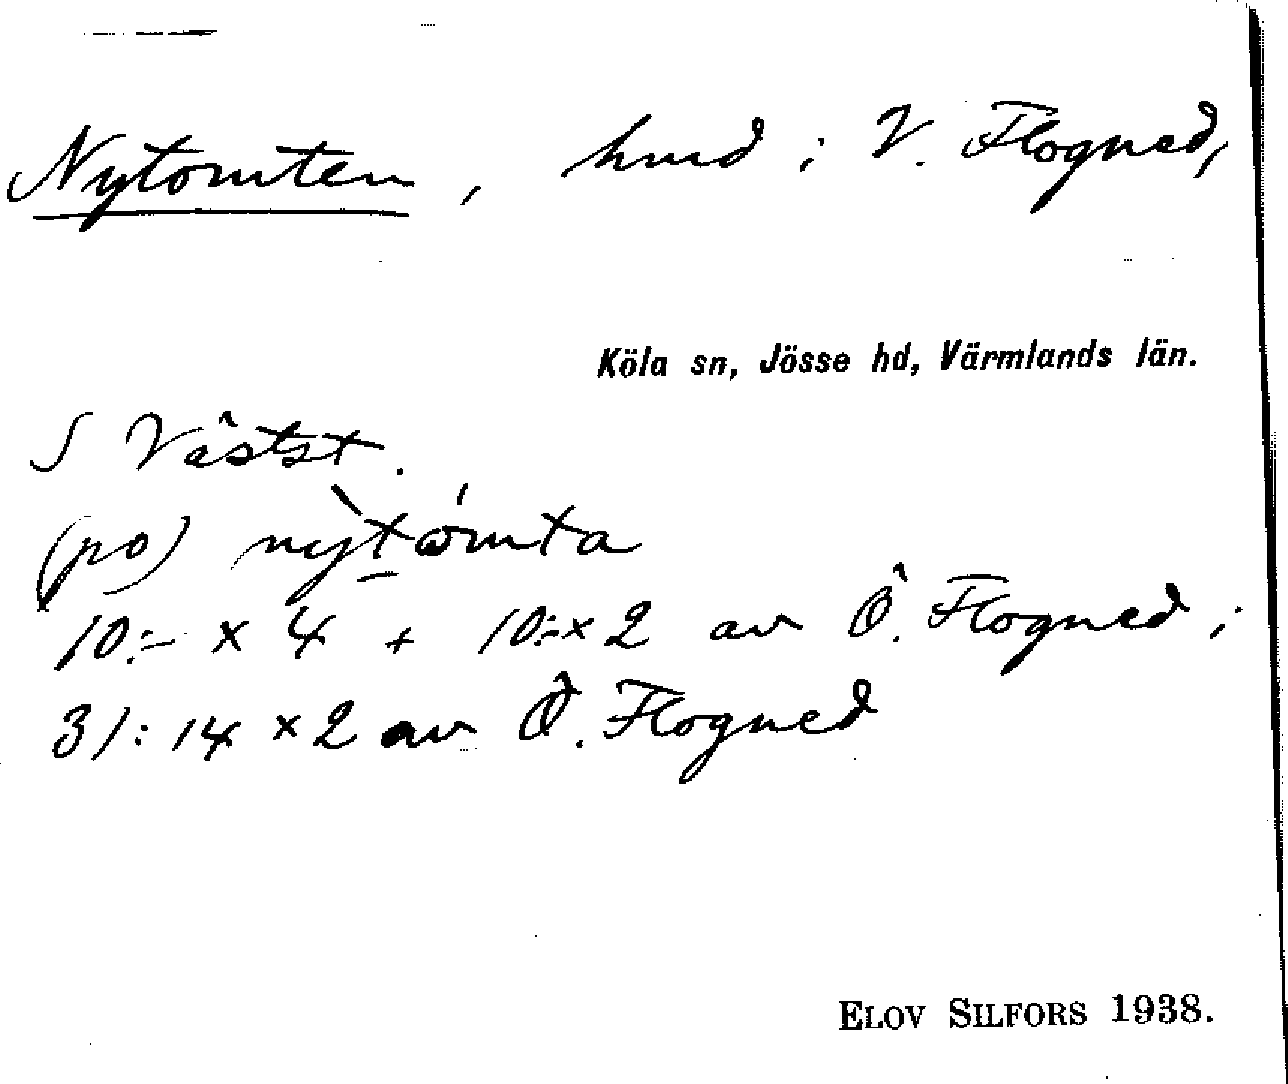 Nytomten, hmd i V. Flogned,
Köla sn, Jösse hd, Värmlands län.
S Västst.
(po) nỳtómta
10:- x 4 + 10:- x 2 av Ö. Flogned;
31:14 x 2 av Ö. Flogned
ELOV SILFORS 1938.